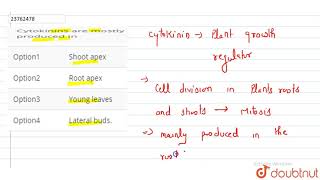 23762478
Cytokinins are mostly
produced in
Option1 Shoot apex
Option2 Root apex
Option3 Young leaves
Option4 Lateral buds.
cytokinin → Plant growth
regulator
→ Cell division in Plants roots
and shoots → Mitosis
→ mainly produced in the
root
doubtnut